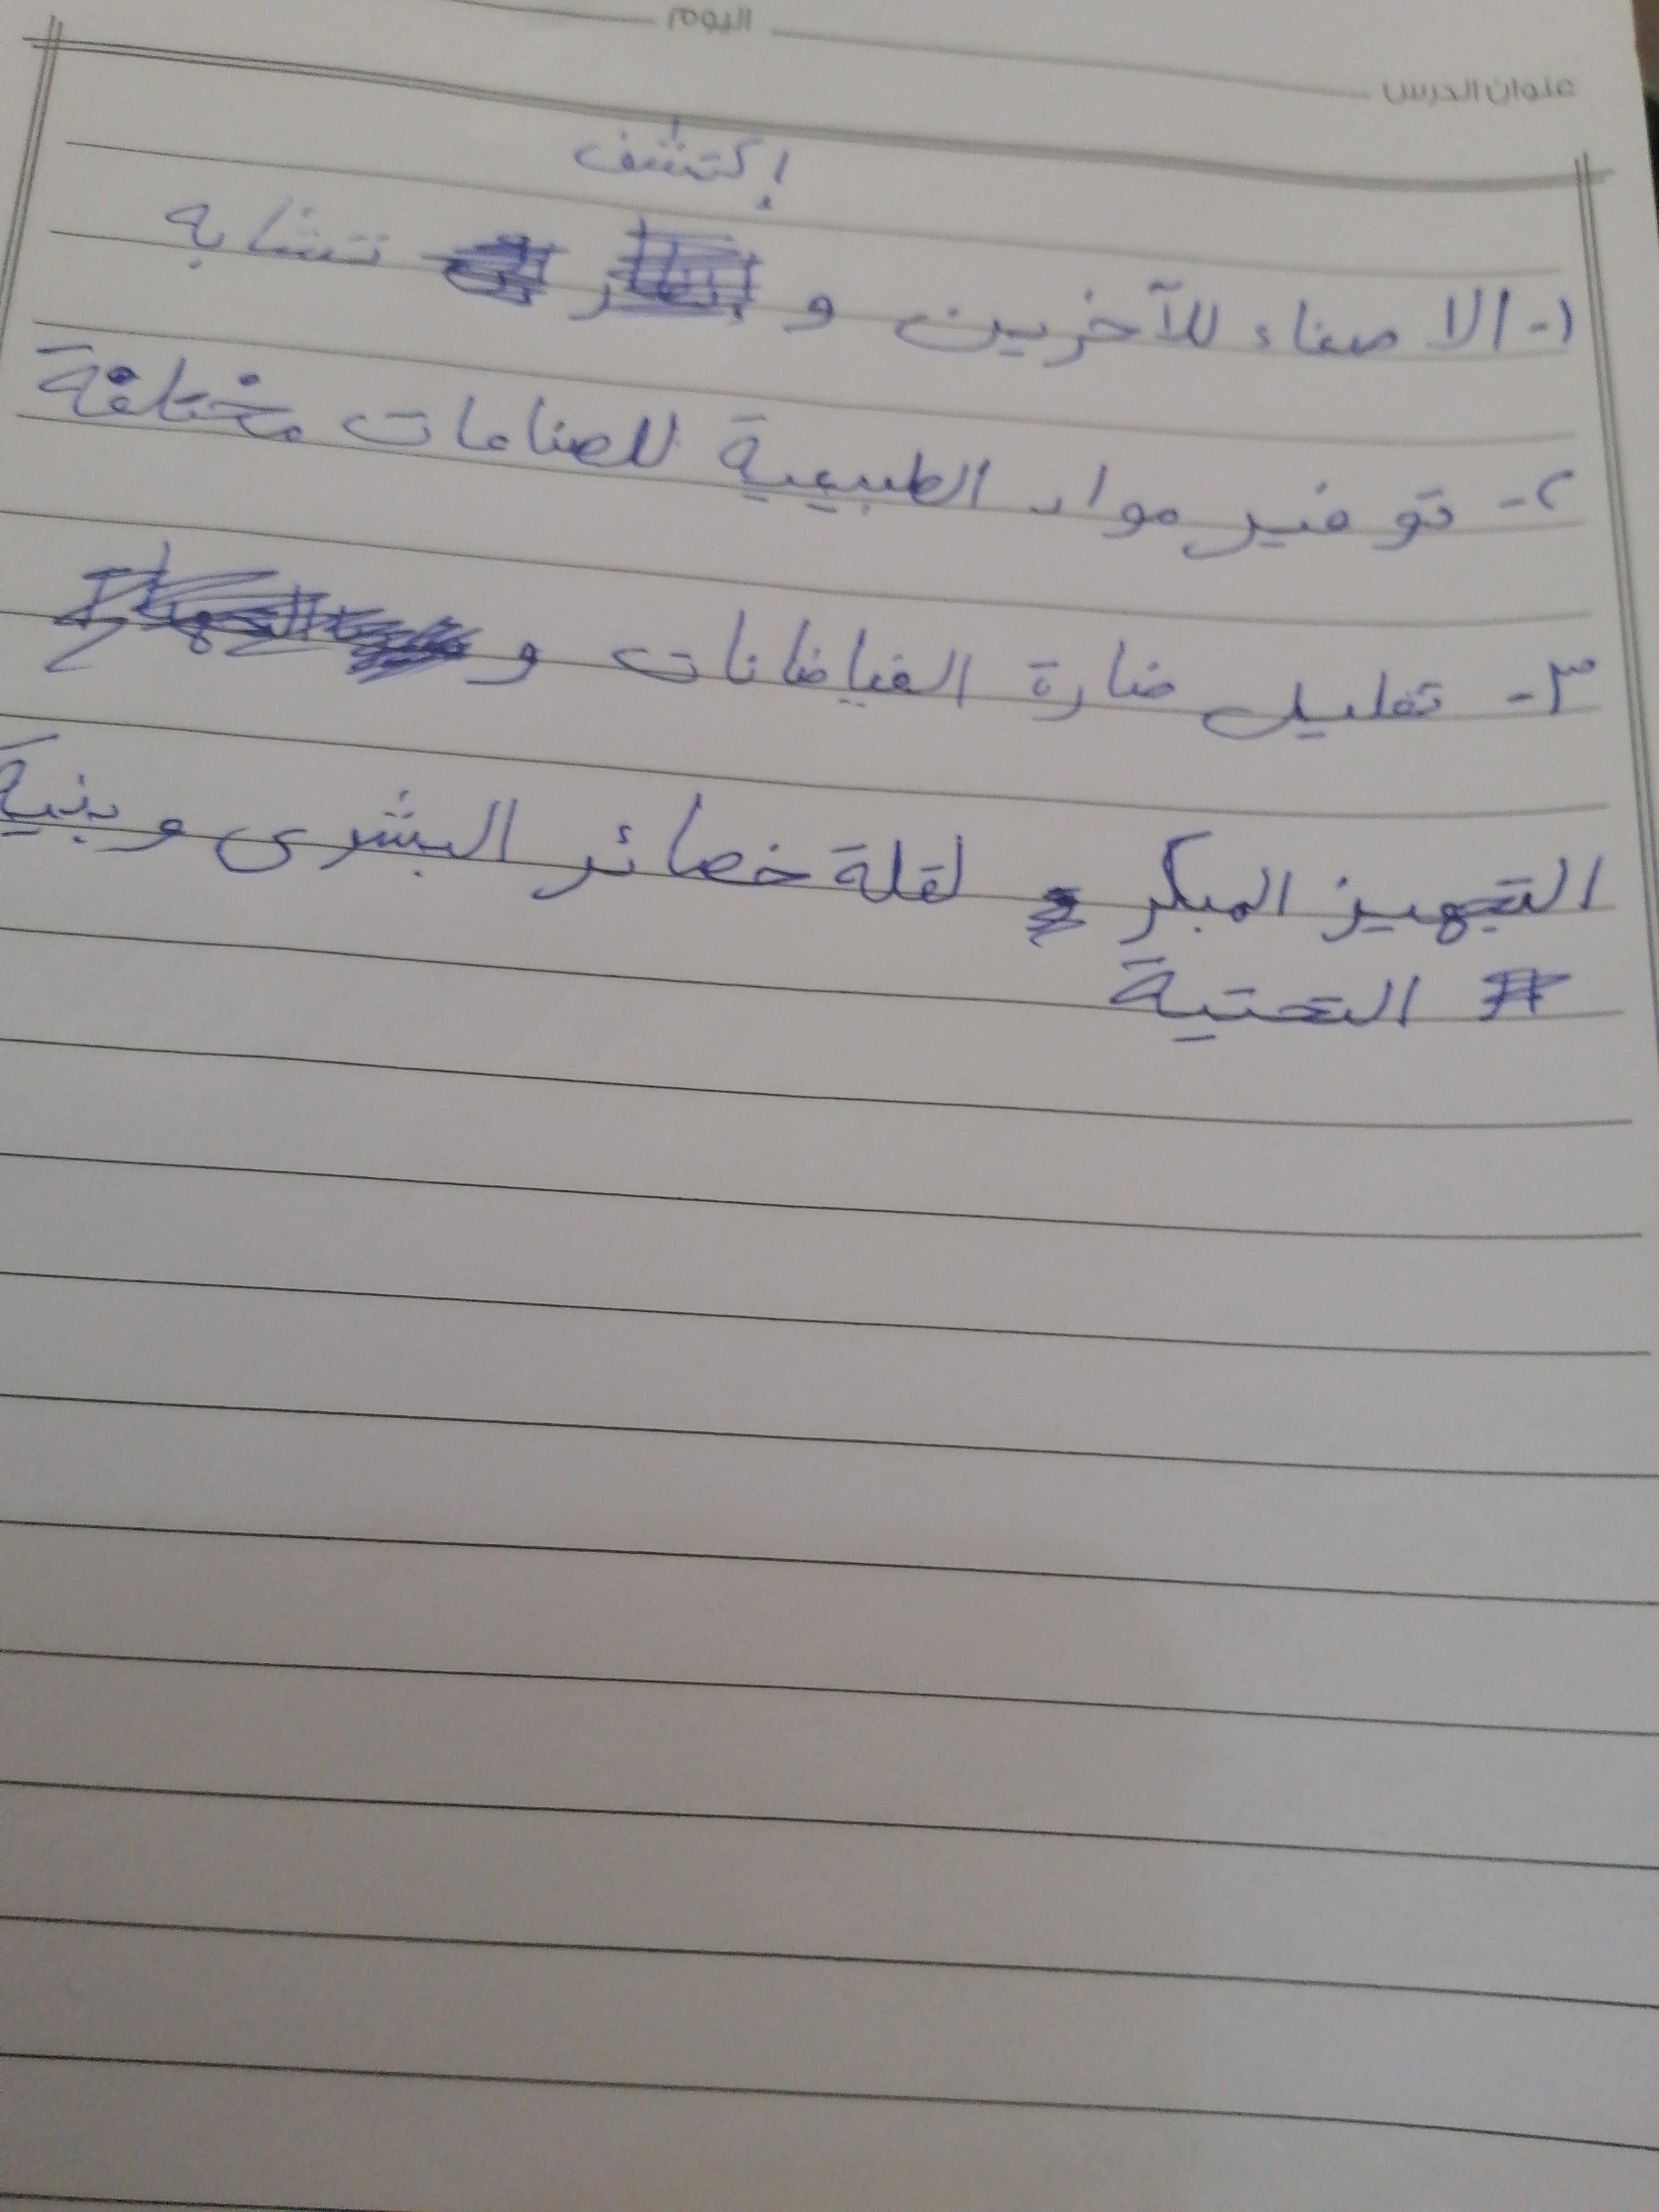 اليوم
عنوان الدرس
إكتشف
١- الاصغاء للآخرين و تشابه
٢- توفير مواد الطبيعية للصناعات مختلفة
٣- تقليل ضارة الفياضانات و
التجهيز المبكر لقلة خصائر البشرى و بنية
التحتية